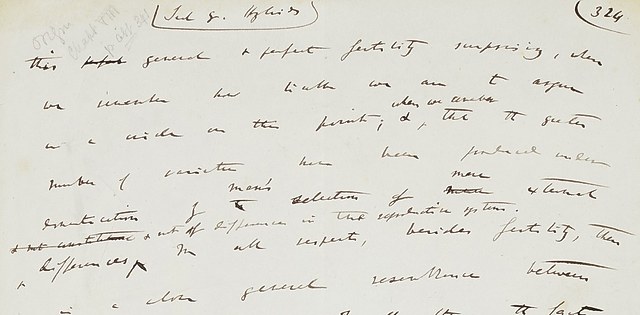 Hybrids 324
this general & perfect fertility surprising, when
we remember how liable we are to argue
in a circle on this point; & when we remember that the greater
number of varieties have been produced under
domestication by man's selection of mere external
differences, & not of differences in the reproductive system.
In all respects, besides fertility, there
is a close general resemblance between